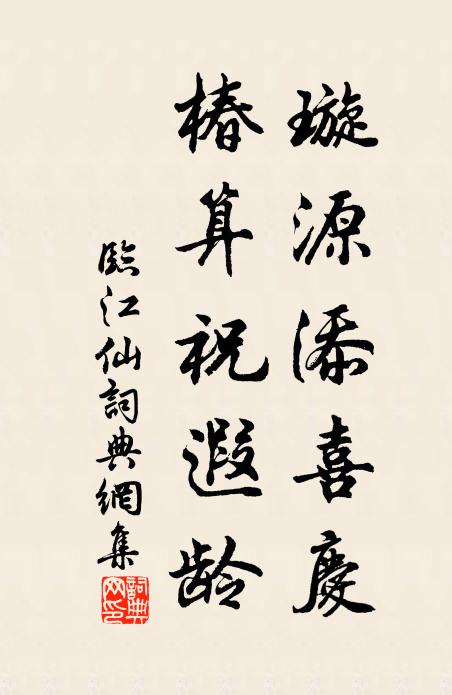 璇源添喜慶
椿算祝遐龄
臨江仙詞典網集
詞典网印